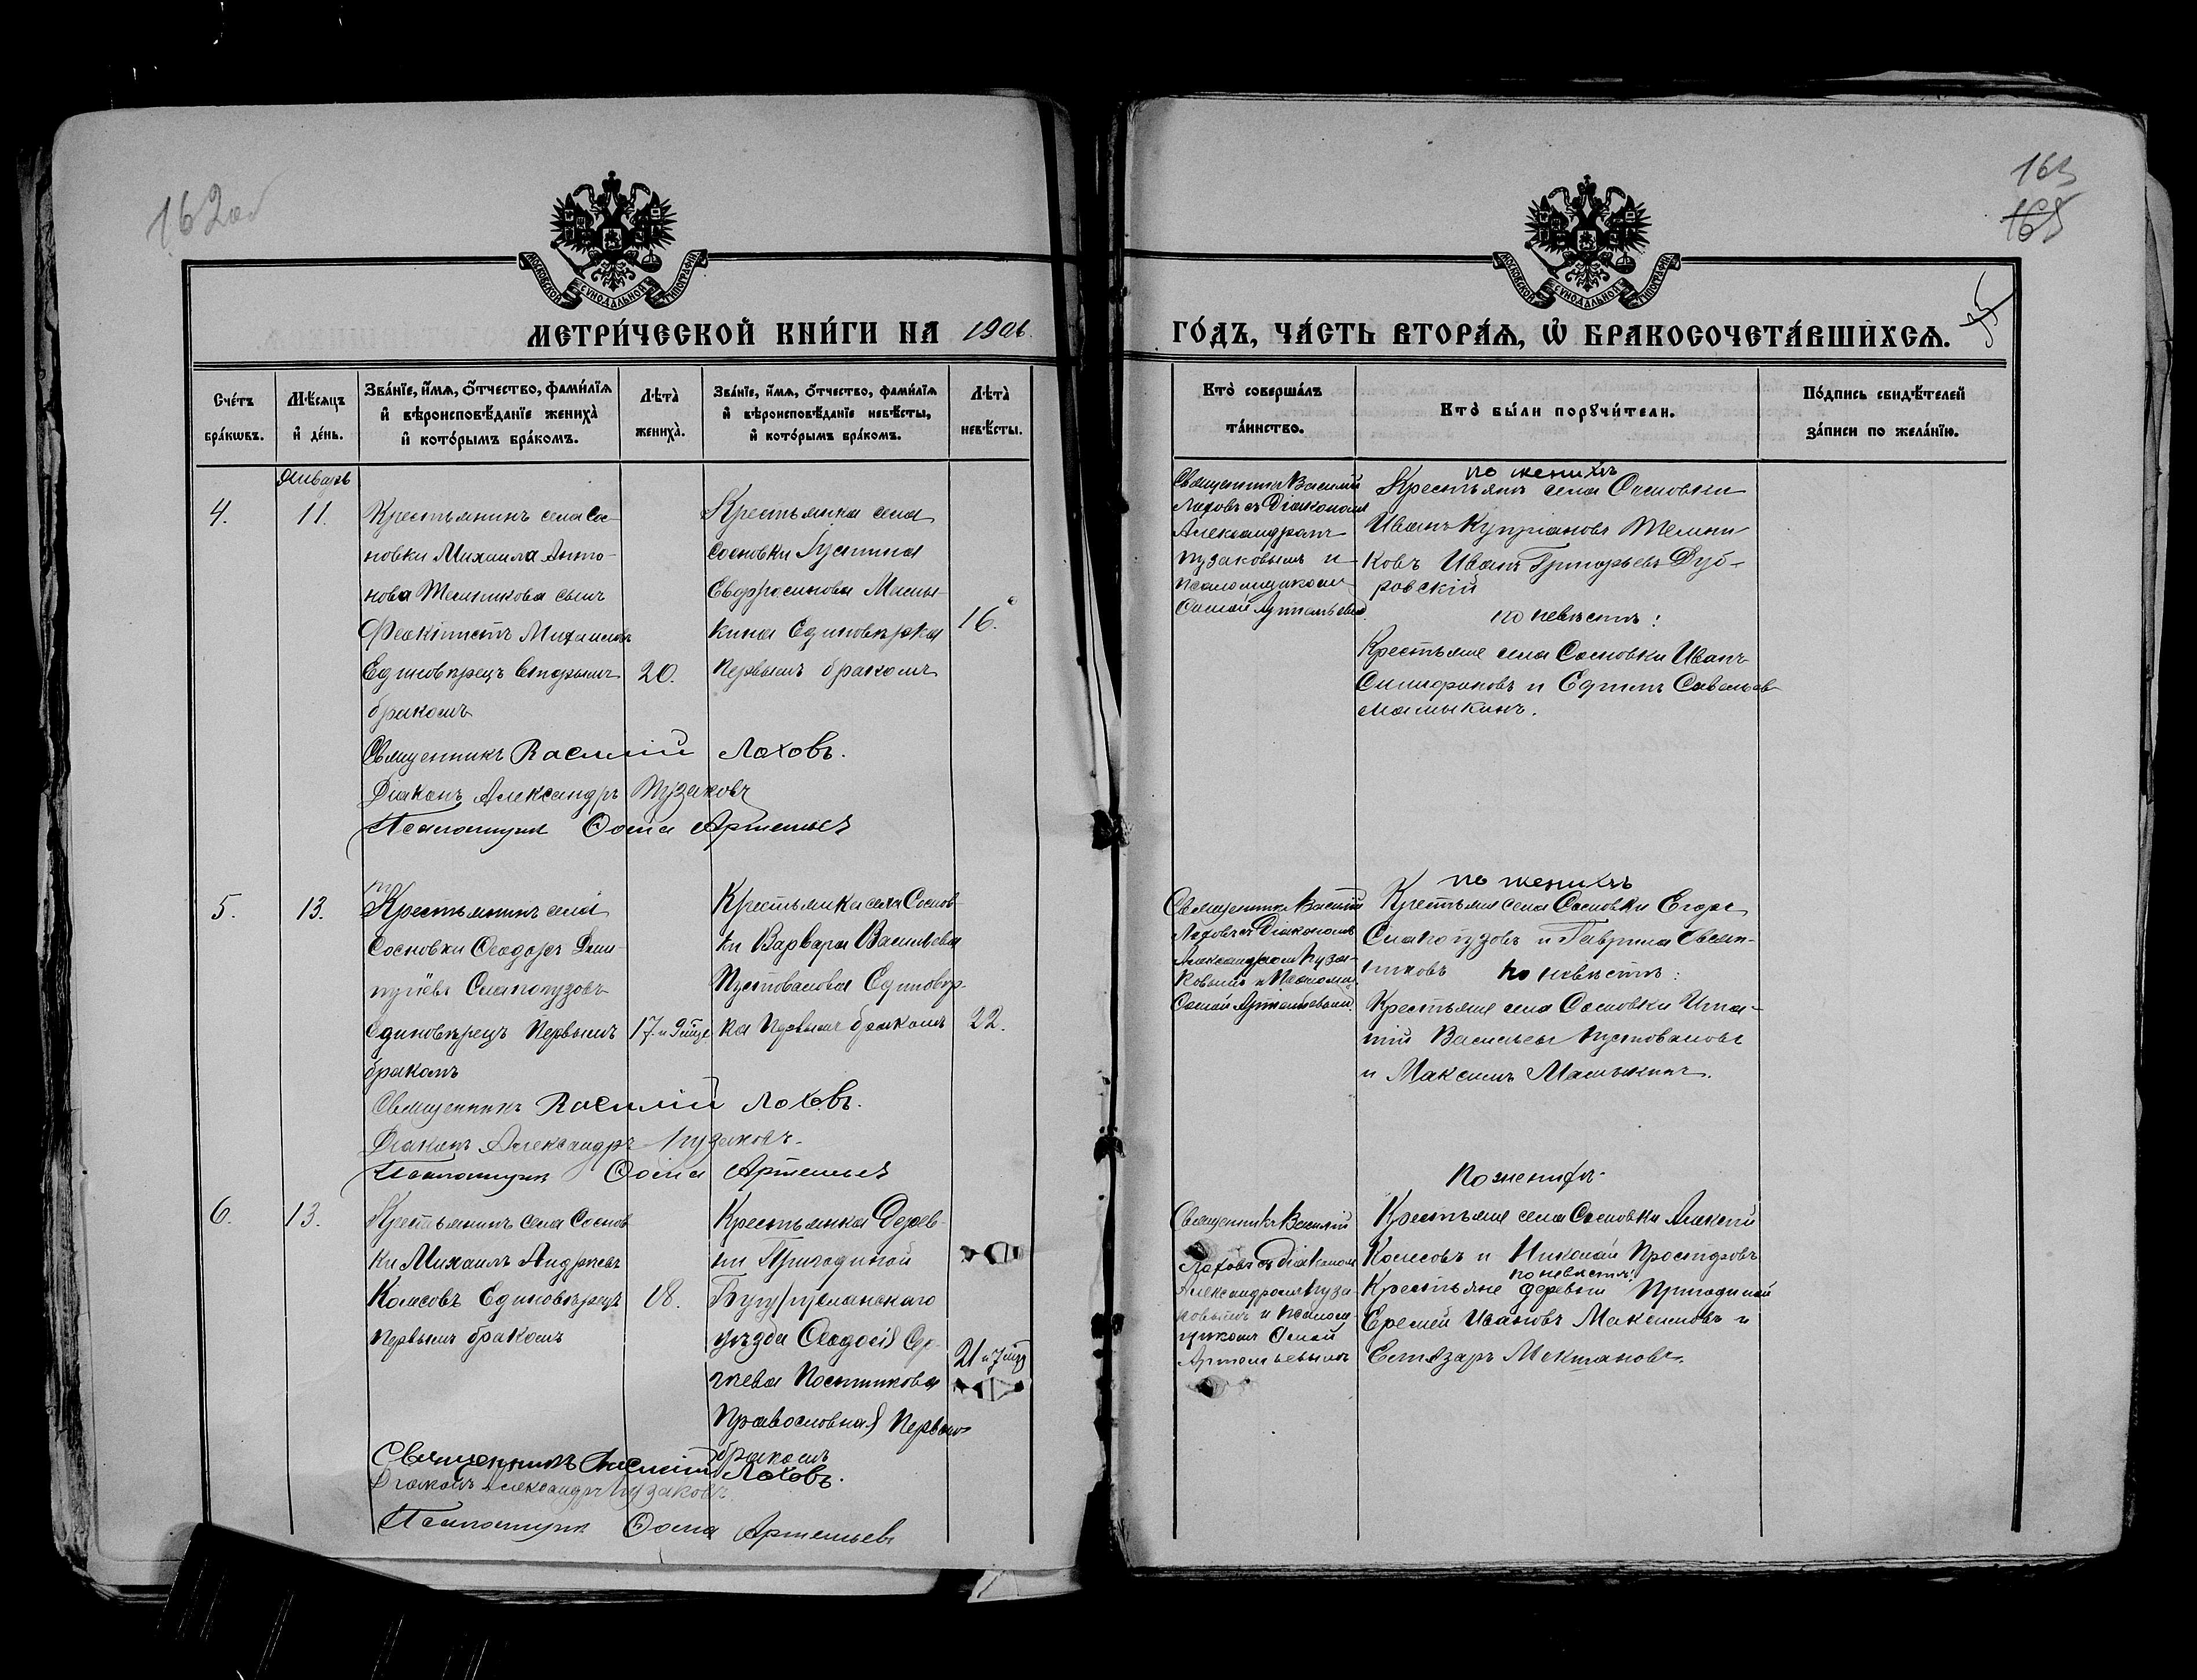 162об
163
165
МОСКОВСКОЙ СУНОДАЛЬНОЙ ТИПОГРАФІИ
МОСКОВСКОЙ СУНОДАЛЬНОЙ ТИПОГРАФІИ
МЕТРИ́ЧЕСКОЙ КНИ́ГИ НА 1906
ГО́ДЪ, ЧА́СТЬ ВТОРА́Ѧ, Ѽ БРАКОСОЧЕТА́ВШИХСѦ.
Сче́тъ бра́кѡвъ.
Мѣ́сяцъ и де́нь.
Зва́нїе, и́мѧ, ѻ́тчество, фами́лїѧ и вѣроисповѣ́данїе жениха̀ и кото́рымъ бра́комъ.
Лѣта̀ жениха̀.
Зва́нїе, и́мѧ, ѻ́тчество, фами́лїѧ и вѣроисповѣ́данїе невѣ́сты, и кото́рымъ бра́комъ.
Лѣта̀ невѣ́сты.
Кто̀ соверша́лъ та́инство.
Кто̀ бы́ли порꙋчи́тели.
По́дпись свидѣ́телей за́писи по жела́нїю.
Январь
4.
11.
Крестьянинъ села Сос-
новки Михаила Анто-
нова Темникова сынъ
Феоктистъ Михаиловъ
Единовѣрецъ вторымъ
бракомъ
20.
Крестьянка села
Сосновки Іустина
Евфросинова Мамы-
кина Единовѣрка
первымъ бракомъ
16.
Священникъ Василій
Лаховъ съ Діакономъ
Александромъ
Пузаковымъ и
псаломщикомъ
Ѳомой Артемьевымъ
по женихѣ
Крестьяне села Сосновки
Иванъ Купріановъ Темни-
ковъ Иванъ Григорьевъ Дуб-
ровскій
по невѣстѣ:
Крестьяне села Сосновки Иванъ
и Савельев
Мамыкинъ.
Священникъ Василій Лаховъ.
Діаконъ Александръ Пузаковъ
Псаломщик Ѳома Артемьев
5.
13.
Крестьянинъ села
Сосновки Ѳеодоръ Дми-
тріевъ Слапогузовъ
Единовѣрецъ Первымъ
бракомъ
17. и 9 мѣс
Крестьянка села Соснов-
ки Варвара Васильева
Пустовалова Единовѣр-
ка первымъ бракомъ
22.
Священникъ Василій
Лаховъ съ Діакономъ
Александромъ Пуза-
ковымъ и Псаломщ.
Ѳомой Артемьевым.
по женихѣ
Крестьяне села Сосновки Егоръ
Слапогузовъ и Гаврила
по невѣстѣ:
Крестьяне села Сосновки Игна-
тій Васильевъ Пустоваловъ
и Максимъ Мамыкинъ.
Священникъ Василій Лаховъ.
Діаконъ Александръ Пузаковъ.
Псаломщик Ѳома Артемьев
6.
13.
Крестьянинъ села Соснов
ки Михаилъ Андреевъ
Колесовъ Единовѣрецъ
первымъ бракомъ
18.
Крестьянка Дерев-
ни Пригодиной
Бугурусланскаго
уѣзда Ѳеодосія Сер-
гѣева Постникова
Православная Первымъ
бракомъ
21 и 7 мѣс
Священникъ Василій
Лаховъ съ Діакономъ
Александромъ Пуза-
ковымъ и псалом-
щикомъ Ѳомой
Артемьевымъ
По женихѣ
Крестьяне села Сосновки Алексѣй
Колесовъ и Николай
по невѣстѣ:
Крестьяне деревни Пригодиной
Еремей Ивановъ Максимовъ и
Священникъ Василій Лаховъ.
Діаконъ Александръ Пузаковъ
Псаломщик Ѳома Артемьевъ